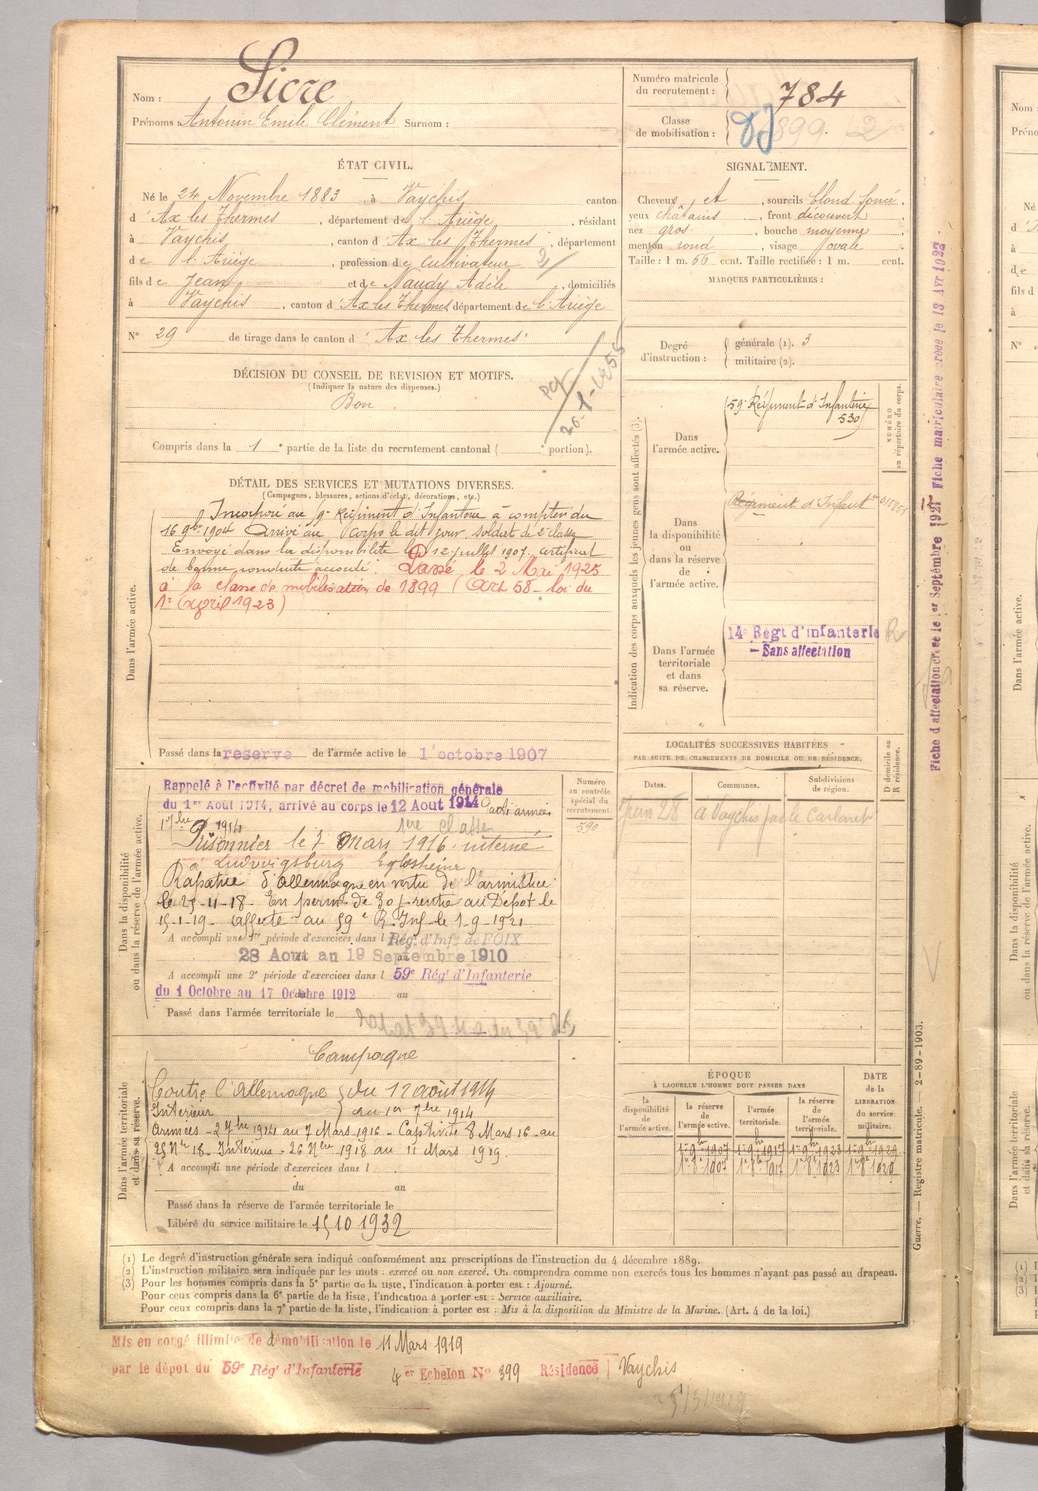 Nom : Sicre
Prénoms : Antonin Emile Clément Surnom :
Numéro matricule
du recrutement : 784
Classe
de mobilisation : 1899. 2
ÉTAT CIVIL.
Né le 24 Novembre 1883 à Vaychis canton
d'Ax les Thermes, département de l'Ariège, résidant
à Vaychis, canton d'Ax les Thermes, département
de l'Ariège, profession de cultivateur
fils de Jean et de Naudy Adèle, domiciliés
à Vaychis, canton d'Ax les Thermes département de l'Ariège
N° 29 de tirage dans le canton d'Ax les Thermes
SIGNALEMENT.
Cheveux et , sourcils blond foncé
yeux châtains , front découvert
nez gros , bouche moyenne
menton rond , visage ovale
Taille : 1 m. 66 cent. Taille rectifiée : 1 m. cent.
MARQUES PARTICULIÈRES :
Degré
d'instruction :
générale (1). 3
militaire (2).
DÉCISION DU CONSEIL DE REVISION ET MOTIFS.
(Indiquer la nature des dispenses.)
Bon
Compris dans la 1e partie de la liste du recrutement cantonal ( portion).
DÉTAIL DES SERVICES ET MUTATIONS DIVERSES.
(Campagnes, blessures, actions d'éclat, décorations, etc.)
Dans l'armée active.
Incorporé au 9e Régiment d'Infanterie à compter du
16 9bre 1904 Arrivé au Corps le dit jour soldat de 2e classe
Envoyé dans la disponibilité le 12 juillet 1907. Certificat
de bonne conduite accordé. Passé le 2 Mai 1925
à la classe de mobilisation de 1899 (Art 58 - loi du
1er April 1923)
Passé dans la reserve de l'armée active le 1 octobre 1907
Indication des corps auxquels les jeunes gens sont affectés (3).
Dans
l'armée active.
59e Régiment d'Infanterie
530
NUMÉRO
au répertoire du corps.
Dans
la disponibilité
ou
dans la réserve
de
l'armée active.
Régiment d'Infantie
Dans l'armée
territoriale
et dans
sa réserve.
14e Régt d'infanterie
- Sans affectation
R
Fiche d'affectation créée le 1er Septembre 1927 Fiche matriculaire créée le 13 Avr 1923
Dans la disponibilité
ou dans la réserve de l'armée active.
Rappelé à l'activité par décret de mobilisation générale
du 1er Août 1914, arrivé au corps le 12 Aout 1914 aux armées
1 7bre 1914 1ère classe
Prisonnier le 7 Mars 1916 interné
à Ludwigsburg Eglosheim
Rapatrié d'Allemagne en vertu de l'armistice
le 25-11-18. En perm de 30 j. rentré au Dépot le
15-1-19 Affecté au 59e R. Inf. le 1.9.1921
A accompli une 1re période d'exercices dans l Rég. d'Infie de FOIX
28 Aout au 19 Septembre 1910
A accompli une 2e période d'exercices dans l 59e Rég. d'Infanterie
du 1 Octobre au 17 Octobre 1912 au
Passé dans l'armée territoriale le
Numéro
au contrôle
spécial du
recrutement.
590
LOCALITÉS SUCCESSIVES HABITÉES
PAR SUITE DE CHANGEMENTS DE DOMICILE OU DE RÉSIDENCE.
Dates. Communes. Subdivisions
de région.
D domicile ou
R résidence.
Dans l'armée territoriale
et dans sa réserve.
Campagne
Contre l'Allemagne } du 12 août 1914
Intérieur } au 1er 7bre 1914
Armées - 2 7bre 1914 au 7 Mars 1916 - Captivité 8 Mars 16 - au
25 Nre 18 - Intérieur - 26 Nre 1918 au 11 Mars 1919.
A accompli une période d'exercices dans l
du au
Passé dans la réserve de l'armée territoriale le
Libéré du service militaire le 15 10 1932
ÉPOQUE
À LAQUELLE L'HOMME DOIT PASSER DANS
la
disponibilité
de
l'armée active.
la réserve
de
l'armée active.
l'armée
territoriale.
la réserve
de
l'armée
territoriale.
DATE
de la
LIBÉRATION
du service
militaire.
(1) Le degré d'instruction générale sera indiqué conformément aux prescriptions de l'instruction du 4 décembre 1889.
(2) L'instruction militaire sera indiquée par les mots : exercé ou non exercé. On comprendra comme non exercés tous les hommes n'ayant pas passé au drapeau.
(3) Pour les hommes compris dans la 5e partie de la liste, l'indication à porter est : Ajourné.
Pour ceux compris dans la 6e partie de la liste, l'indication à porter est : Service auxiliaire.
Pour ceux compris dans la 7e partie de la liste, l'indication à porter est : Mis à la disposition du Ministre de la Marine. (Art. 4 de la loi.)
Guerre. — Registre matricule. — 2-89-1903.
Mis en congé illimité de démobilisation le 11 Mars 1919
par le dépot du 59e Rég. d'Infanterie 4er Echelon N° 399 Résidence Vaychis